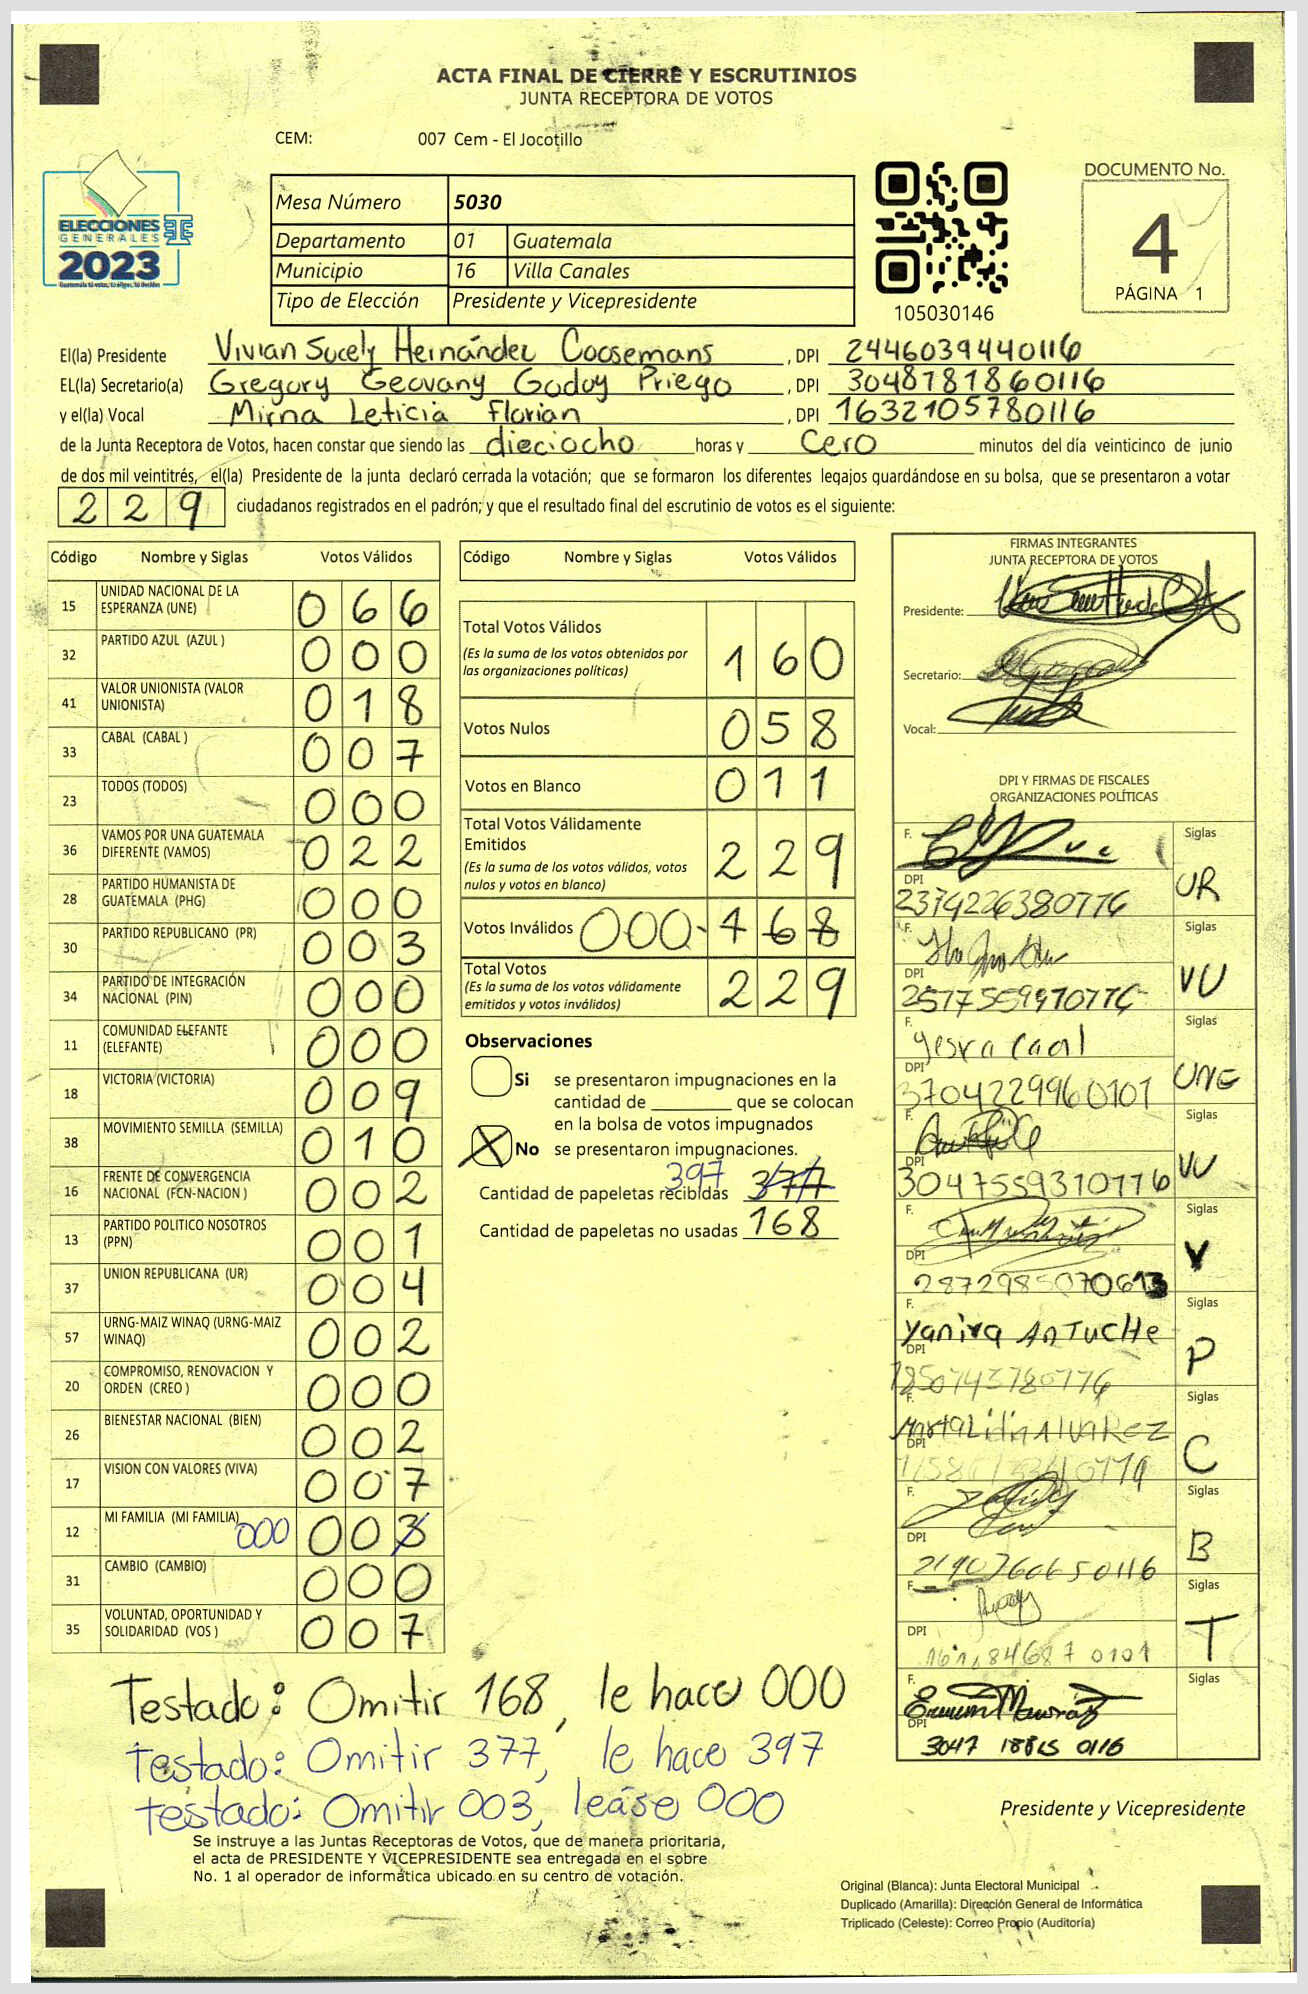 ACTA FINAL DE CIERRE Y ESCRUTINIOS
JUNTA RECEPTORA DE VOTOS
CEM: 007 Cem - El Jocotillo
ELECCIONES
GENERALES
2023
Mesa Número 5030
Departamento 01 Guatemala
Municipio 16 Villa Canales
Tipo de Elección Presidente y Vicepresidente
105030146
DOCUMENTO No.
4
PÁGINA 1
El(la) Presidente Vivian Sucely Hernández Coosemans, DPI 2446039440116
EL(la) Secretario(a) Gregory Geovany Godoy Priego, DPI 3048781860116
y el(la) Vocal Mirna Leticia Florian, DPI 1632105780116
de la Junta Receptora de Votos, hacen constar que siendo las dieciocho horas y Cero minutos del día veinticinco de junio
de dos mil veintitrés, el(la) Presidente de la junta declaró cerrada la votación; que se formaron los diferentes legajos guardándose en su bolsa, que se presentaron a votar
229 ciudadanos registrados en el padrón; y que el resultado final del escrutinio de votos es el siguiente:
Código Nombre y Siglas Votos Válidos
15 UNIDAD NACIONAL DE LA ESPERANZA (UNE) 066
32 PARTIDO AZUL (AZUL ) 000
41 VALOR UNIONISTA (VALOR UNIONISTA) 018
33 CABAL (CABAL ) 007
23 TODOS (TODOS) 000
36 VAMOS POR UNA GUATEMALA DIFERENTE (VAMOS) 022
28 PARTIDO HUMANISTA DE GUATEMALA (PHG) 000
30 PARTIDO REPUBLICANO (PR) 003
34 PARTIDO DE INTEGRACIÓN NACIONAL (PIN) 000
11 COMUNIDAD ELEFANTE (ELEFANTE) 000
18 VICTORIA (VICTORIA) 009
38 MOVIMIENTO SEMILLA (SEMILLA) 010
16 FRENTE DE CONVERGENCIA NACIONAL (FCN-NACION ) 002
13 PARTIDO POLITICO NOSOTROS (PPN) 001
37 UNION REPUBLICANA (UR) 004
57 URNG-MAIZ WINAQ (URNG-MAIZ WINAQ) 002
20 COMPROMISO, RENOVACION Y ORDEN (CREO ) 000
26 BIENESTAR NACIONAL (BIEN) 002
17 VISION CON VALORES (VIVA) 007
12 MI FAMILIA (MI FAMILIA) 000 003
31 CAMBIO (CAMBIO) 000
35 VOLUNTAD, OPORTUNIDAD Y SOLIDARIDAD (VOS ) 007
Código Nombre y Siglas Votos Válidos
Total Votos Válidos 160
(Es la suma de los votos obtenidos por las organizaciones políticas)
Votos Nulos 058
Votos en Blanco 011
Total Votos Válidamente Emitidos 229
(Es la suma de los votos válidos, votos nulos y votos en blanco)
Votos Inválidos 000- 168
Total Votos 229
(Es la suma de los votos válidamente emitidos y votos inválidos)
Observaciones
Si se presentaron impugnaciones en la
cantidad de ________ que se colocan
en la bolsa de votos impugnados
X No se presentaron impugnaciones.
Cantidad de papeletas recibidas 397 377
Cantidad de papeletas no usadas 168
FIRMAS INTEGRANTES
JUNTA RECEPTORA DE VOTOS
Presidente:
Secretario:
Vocal:
DPI Y FIRMAS DE FISCALES
ORGANIZACIONES POLÍTICAS
F. Siglas
DPI UR
F. Siglas
DPI VU
F. Siglas
DPI 3704229960101 UNE
F. Siglas
DPI 3047559310776 VU
F. Siglas
DPI V
F. Yanira Antuche Siglas
DPI P
F. Siglas
DPI C
F. Siglas
DPI B
F. Siglas
DPI T
F. Siglas
DPI 3047 18815 0116
Testado: Omitir 168, le hace 000
Testado: Omitir 377, le hace 397
testado: Omitir 003, leáse 000
Presidente y Vicepresidente
Se instruye a las Juntas Receptoras de Votos, que de manera prioritaria,
el acta de PRESIDENTE Y VICEPRESIDENTE sea entregada en el sobre
No. 1 al operador de informática ubicado en su centro de votación.
Original (Blanca): Junta Electoral Municipal
Duplicado (Amarilla): Dirección General de Informática
Triplicado (Celeste): Correo Propio (Auditoría)